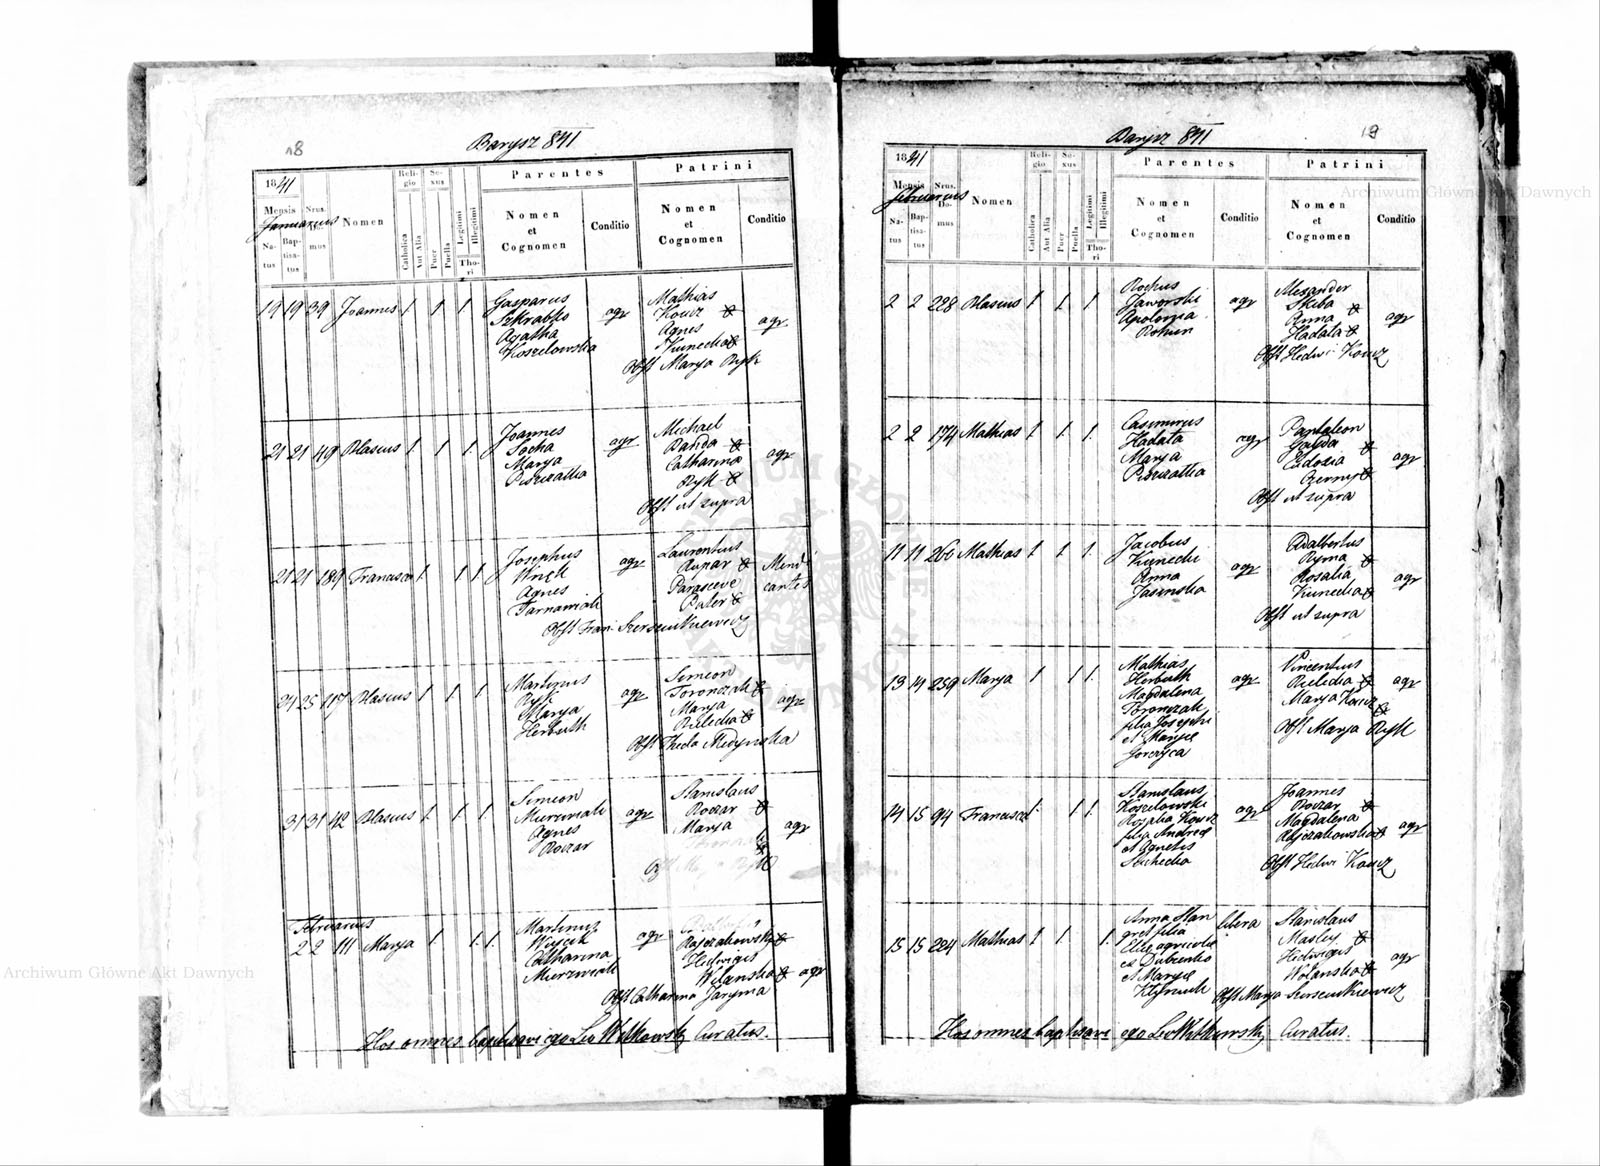 18
Barysz 841
1841
Mensis
Januarius
Natus
Baptisatus
Nrus Domus
Nomen
Religio
Catholica
Aut Alia
Sexus
Puer
Puella
Thori
Legitimi
Illegitimi
Parentes
Nomen
et
Cognomen
Conditio
Patrini
Nomen
et
Cognomen
Conditio
19 19 39 Joannes 1 1 1
Gasparus
Szkrabko
Agatha
Koszelowska
agr
Mathias
Koucz
Agnes
Kunecka
agr
Obst Marya Ryk
21 21 49 Blasius 1 1 1
Joannes
Socha
Marya
agr
Michael
Banda
Catharina
Ryk
agr
Obst ut supra
21 21 189 Francisca 1 1 1
Josephus
Agnes
Tarnawiak
agr
Laurentius
Parasceve
Pater
Mendi
cantes
24 25 117 Blasius 1 1 1
Martinus
Ryk
Marya
Herbuth
agr
Simeon
Toronczak
Marya
Bielecka
agr
Obst Thecla Medynska
31 31 42 Blasius 1 1 1
Simeon
Mierzwiak
Agnes
Roczar
agr
Stanislaus
Roczar
Marya
agr
Februarius
2 2 111 Marya 1 1 1
Martinus
Wojcik
Catharina
Mierzwiak
agr
Rajczakowski
Hedwigis
Wolanska
agr
Obst Catharina Jaryma
Hos omnes baptisavi ego Leo Witkowski Curatus.
19
Barysz 841
1841
Mensis
Februarius
Natus
Baptisatus
Nrus Domus
Nomen
Religio
Catholica
Aut Alia
Sexus
Puer
Puella
Thori
Legitimi
Illegitimi
Parentes
Nomen
et
Cognomen
Conditio
Patrini
Nomen
et
Cognomen
Conditio
2 2 228 Blasius 1 1 1
Rochus
Jaworski
Apolonia
Rohun
agr
Alexander
Skiba
Anna
Hadata
agr
Obst Hedwi Koucz
2 2 174 Mathias 1 1 1
Casimirus
Hadata
Marya
agr
Pantaleon
Galda
Eudoxia
Czerny
agr
Obst ut supra
11 11 266 Mathias 1 1 1
Jacobus
Kunecki
Anna
Jasinska
agr
Adalbertus
Ryma
Rosalia
Kunecka
agr
Obst ut supra
13 14 259 Marya 1 1 1
Mathias
Herbuth
Magdalena
Toronczak
filia Josephi
et Maryæ
Gorczyca
agr
Vincentius
Bielecka
Marya Koucz
agr
Obst Marya Ryk
14 15 94 Francisca 1 1 1
Stanislaus
Koszelowski
Rosalia Koucz
filia Andreæ
et Agnetis
Suchecka
agr
Joannes
Roczar
Magdalena
Rajczakowska
agr
Obst Hedwi Koucz
15 15 224 Mathias 1 1 1
Anna Stan
gret filia
Eliæ agricolæ
ex Dubienko
et Maryæ
libera
Stanislaus
Masley
Hedwigis
Wolanska
agr
Hos omnes baptisavi ego Leo Witkowski Curatus.
Archiwum Główne Akt Dawnych
Archiwum Główne Akt Dawnych